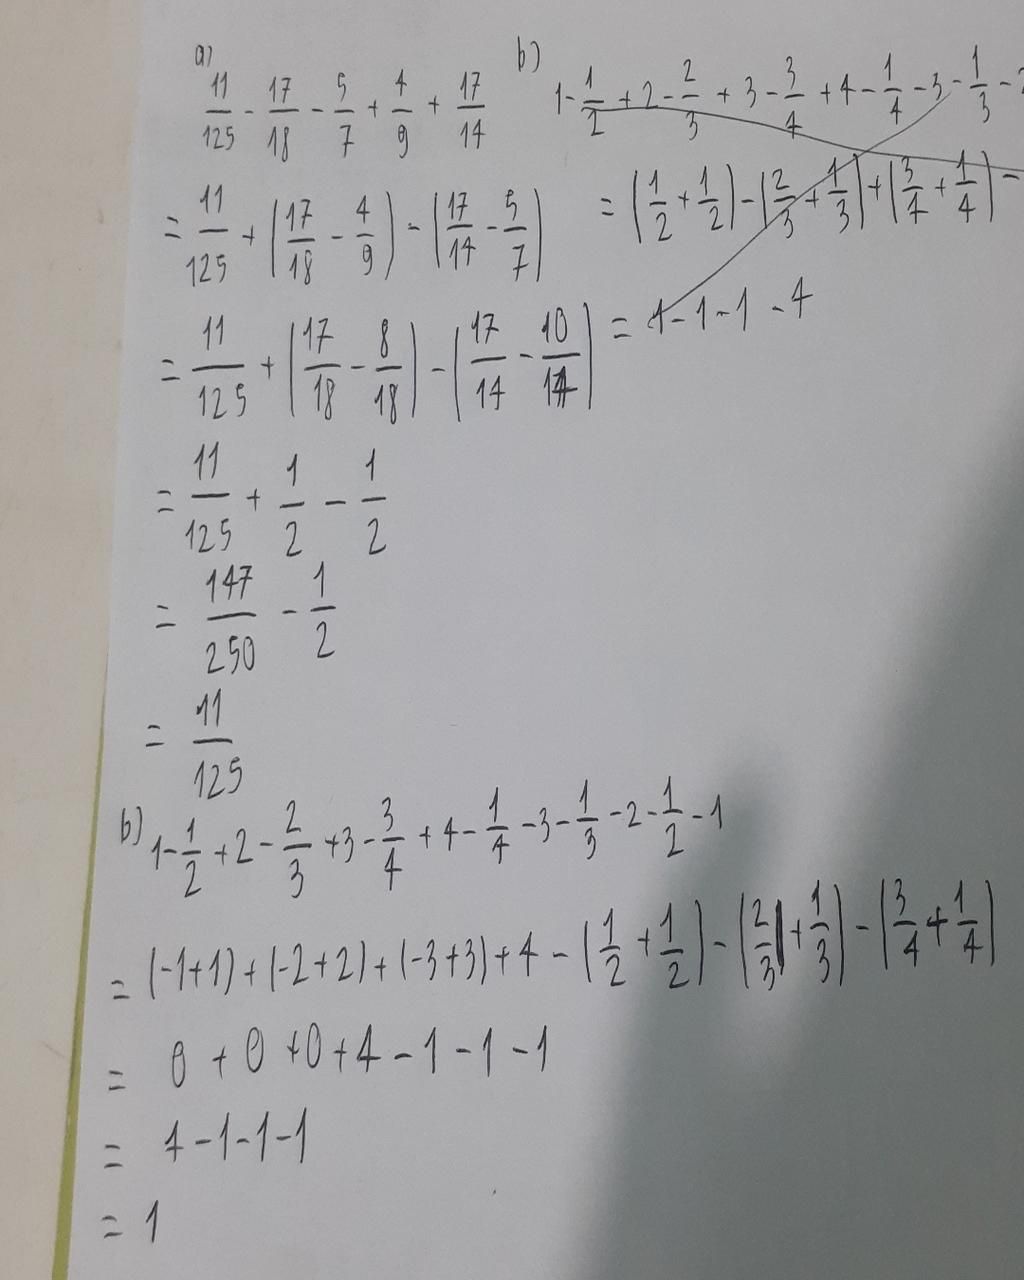 a)
11/125 - 17/18 - 5/7 + 4/9 + 17/14
= 11/125 + (17/18 - 4/9) - (17/14 - 5/7)
= 11/125 + (17/18 - 8/18) - (17/14 - 10/14)
= 11/125 + 1/2 - 1/2
= 147/250 - 1/2
= 11/125
b)
1 - 1/2 + 2 - 2/3 + 3 - 3/4 + 4 - 1/4 - 3 - 1/3 -
= (1/2 + 1/2) - (2/3 + 1/3) + (3/4 + 1/4) -
= 1 - 1 - 1 - 4
b) 1 - 1/2 + 2 - 2/3 + 3 - 3/4 + 4 - 1/4 - 3 - 1/3 - 2 - 1/2 - 1
= (-1+1) + (-2+2) + (-3+3) + 4 - (1/2 + 1/2) - (2/3 + 1/3) - (3/4 + 1/4)
= 0 + 0 + 0 + 4 - 1 - 1 - 1
= 4 - 1 - 1 - 1
= 1